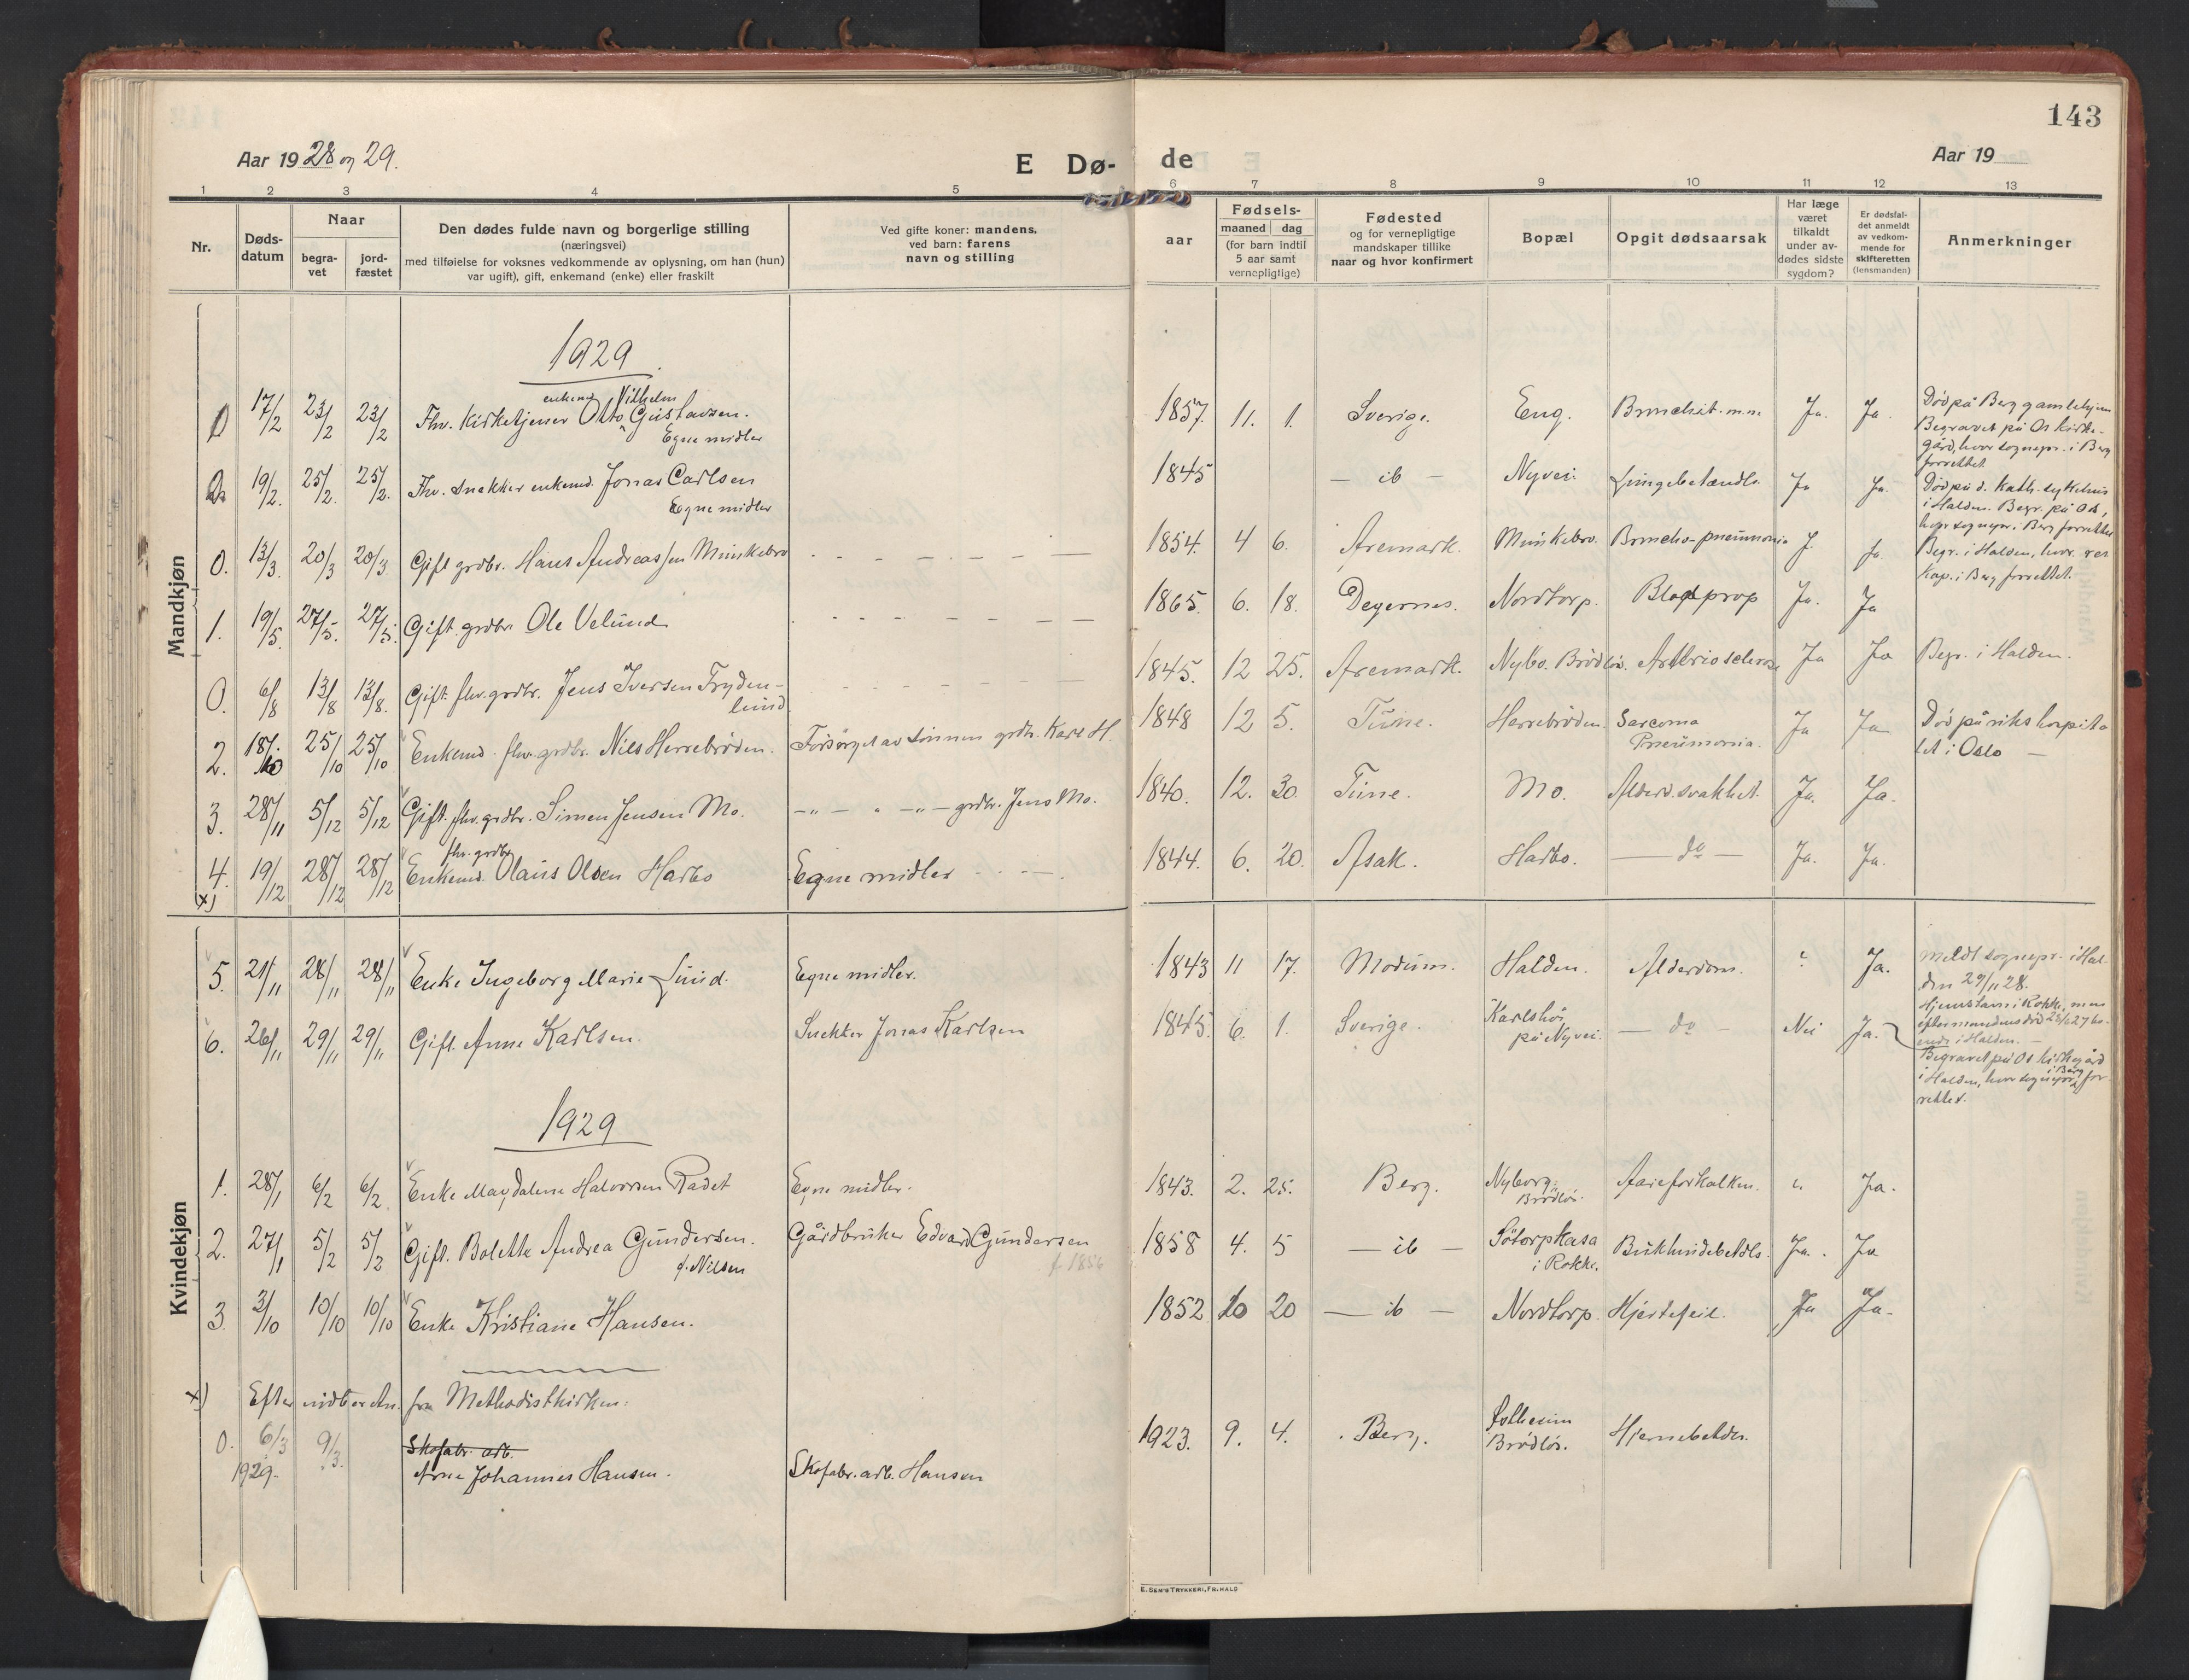 143
Aar 19 28 og 29.
E Dø-
de
Aar 19
1 2 3 4 5 6 7 8 9 10 11 12 13
Nr.
Døds-
datum
Naar
begra-
vet
jord-
fæstet
Den dødes fulde navn og borgerlige stilling
(næringsvei)
med tilføielse for voksnes vedkommende av oplysning, om han (hun)
var ugift), gift, enkemand (enke) eller fraskilt
Ved gifte koner: mandens,
ved barn: farens
navn og stilling
aar
Fødsels-
maaned dag
(for barn indtil
5 aar samt
vernepligtige)
Fødested
og for vernepligtige
mandskaper tillike
naar og hvor konfirmert
Bopæl
Opgit dødsaarsak
Har læge
været
tilkaldt
under av-
dødes sidste
sygdom?
Er dødsfal-
det anmeldt
av vedkom-
mende for
skifteretten
(lensmanden)
Anmerkninger
Mandkjøn
1929
0 17/2 23/2 23/2 Fhv. Kirketjener enkemd Otto Vilhelm Gustavsen. 1857. 11. 1. Sverige. Eng. Bronchit. m.m. Ja. Ja.
Egne midler
Død på Berg gamlehjem
Begravet på Os kirke-
gård, hvor sognepr. i Berg
forrettet.
19/2. 25/2. 25/2. Fhv. Snekker enkemd. Jonas Carlsen 1845 — ib — Nyvei. Lungebetændls. Ja Ja.
Egne midler
Død på d. kath. sykehus
i Halden. Begr. på Os,
hvor sognepr. i Berg forrettet
0. 13/3. 20/3 20/3 Gift grdbr. Hans Andreassen Munkebro 1854. 4 6. Aremark. Munkebro. Broncho-pneumonia J. Ja.
Begr. i Halden, hvor res
kap. i Berg forrettet.
1. 19/5. 27/5. 27/5. Gift grdbr. Ole Velund 1865. 6. 18. Degernes. Nordtorp. Blodprop Ja. Ja
0. 6/8 13/8 13/8. Gift fhv. grdbr. Jens Iversen Fryden- 1845. 12 25. Aremark. Nybo. Brødløs. Arteriosclerose Ja Ja Begr. i Halden.
lund
2. 18/10 25/10 25/10 Enkemd. fhv. grdbr. Nils Herrebrøden. Forsørget av sønnen grdbr. Karl H. 1848 12 5. Tune. Herrebrøden. Sarcoma Ja Ja
Pneumonia.
Død på rikshospita
let i Oslo —
3. 28/11 5/12 5/12 Gift. fhv. grdbr. Simen Jensen Mo. —„— „ —„— grdbr. Jens Mo. 1840. 12. 30. Tune. Mo. Alderd.svakhet. Ja. Ja.
fhv. grdbr.
4. 19/12 28/12 28/12 Enkemd. Olaus Olsen Harbo Egne midler 1844. 6. 20. Asak. Harbo. — do — Ja. Ja.
x)
Kvindekjøn
5. 21/11 28/11 28/11 Enke Ingeborg Marie Lund. Egne midler. 1843 11 17. Modum. Halden. Alderdom. ? Ja.
Meldt sognepr. i Hal-
den 29/11 28.
6. 26/11 29/11 29/11 Gift. Anne Karlsen. Snekker Jonas Karlsen 1845. 6. 1. Sverige. Karlshøi — do — Nei Ja.
på Nyvei.
Begravet på Os kirkegård
i Halden, hvor sognepr. i Berg for-
rettet.
1929
1. 28/1 6/2 6/2. Enke Magdalene Halvorsen Rødet Egne midler. 1843. 2. 25. Berg. Nyborg. Aareforkalken. Ja.
Brødløs.
2. 27/1 5/2 5/2 Gift. Bolette Andrea Gundersen. Gårdbruker Edvard Gundersen 1858 4. 5 — ib — Søtorpkasa Bukhindebetdls. Ja. Ja
f. Nilsen f. 1856 i Rokke.
3. 3/10 10/10 10/10 Enke Kristiane Hansen. 1852 10 20 — ib — Nordtorp. Hjertefeil. Ja Ja.
x) Efter fra Methodistkirken:
0. 6/3 9/3. Skofabr. arb.
1929. Arne Johannes Hansen. Skofabr. arb. Hansen 1923. 9. 4. Berg. Solheim Hjernebetdn.
Brødløs.
E. SEM'S TRYKKERI, FR.HALD